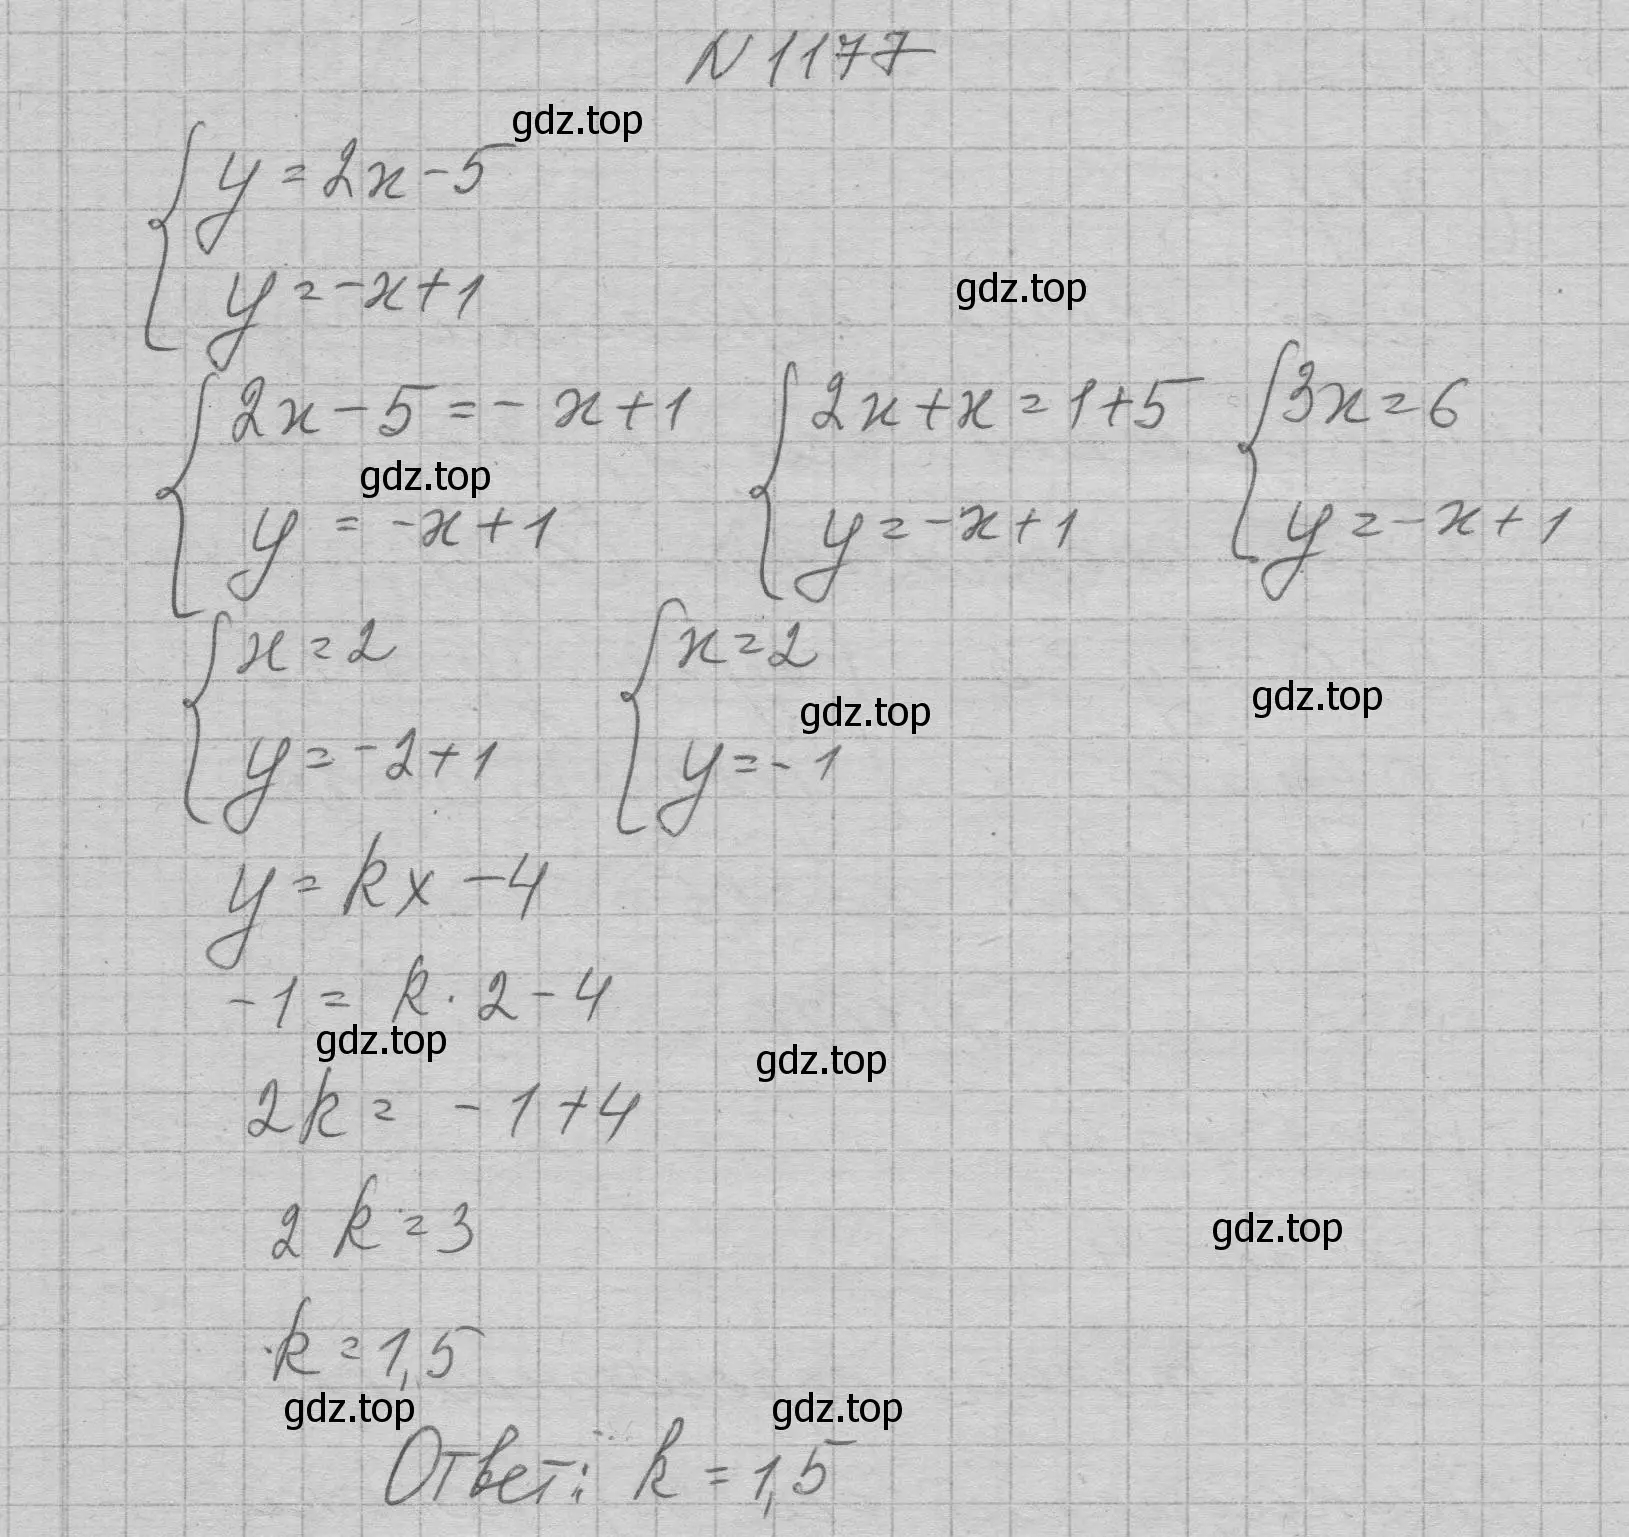 N 1177
gdz.top
{ y = 2x - 5
y = -x + 1
gdz.top
{ 2x - 5 = - x + 1 { 2x + x = 1 + 5 { 3x = 6
gdz.top
y = -x + 1 y = -x + 1 y = -x + 1
{ x = 2 { x = 2
gdz.top gdz.top
y = -2 + 1 y = -1
y = kx - 4
-1 = k · 2 - 4
gdz.top gdz.top
2k = -1 + 4
2k = 3
gdz.top
k = 1,5
gdz.top gdz.top
Ответ: k = 1,5